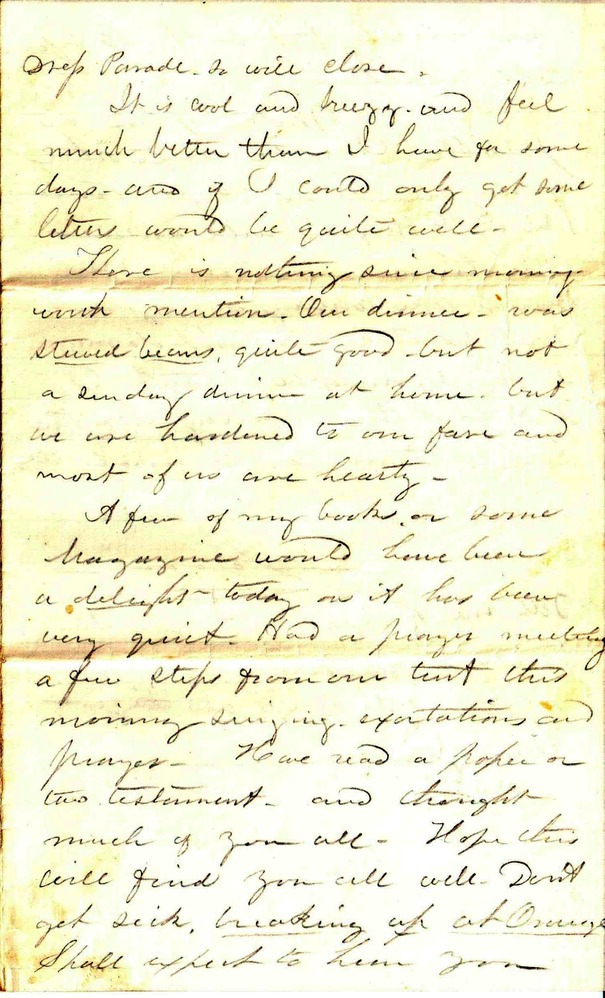 Dress Parade. so will close.
It is cool and breezy. and feel
much better than I have for some
days - and if I could only get some
letters would be quite well -
There is nothing since morning
worth mention. Our dinner - was
stewed beans, quite good - but not
a sunday dinner at home. but
we are hardened to our fare and
most of us are hearty -
A few of my books. or some
Magazine would have been
a delight today as it has been
very quiet. Had a prayer meeting
a few steps from our tent this
morning singing. exortations and
prayer - Have read a paper or
two. testament - and thought
much of you all - Hope this
will find you all well - Dont
get sick, breaking up at Orange
Shall expect to hear you